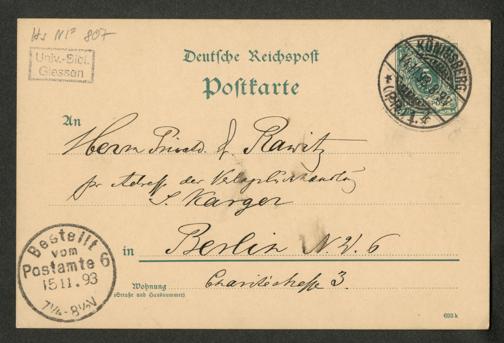 Hs Nr 807
Univ.-Bibl.
Giessen
Deutsche Reichspost
Postkarte
KÖNIGSBERG
(PR.) 1.
An
Herrn Privatd. Dr. Rawitz
pr Adresse der Verlagsbuchhandlung
S. Karger
in Berlin N.W. 6
Wohnung
(Straße und Hausnummer)
Charitéstraße 3.
Bestellt
vom
Postamte 6
15 11. 93
7¼-8½N
693 k